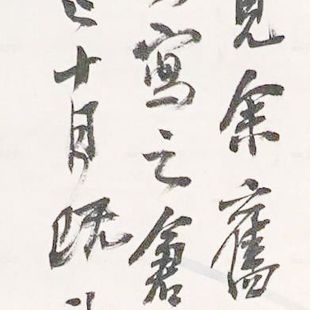 見余舊
寫之倉
十月既